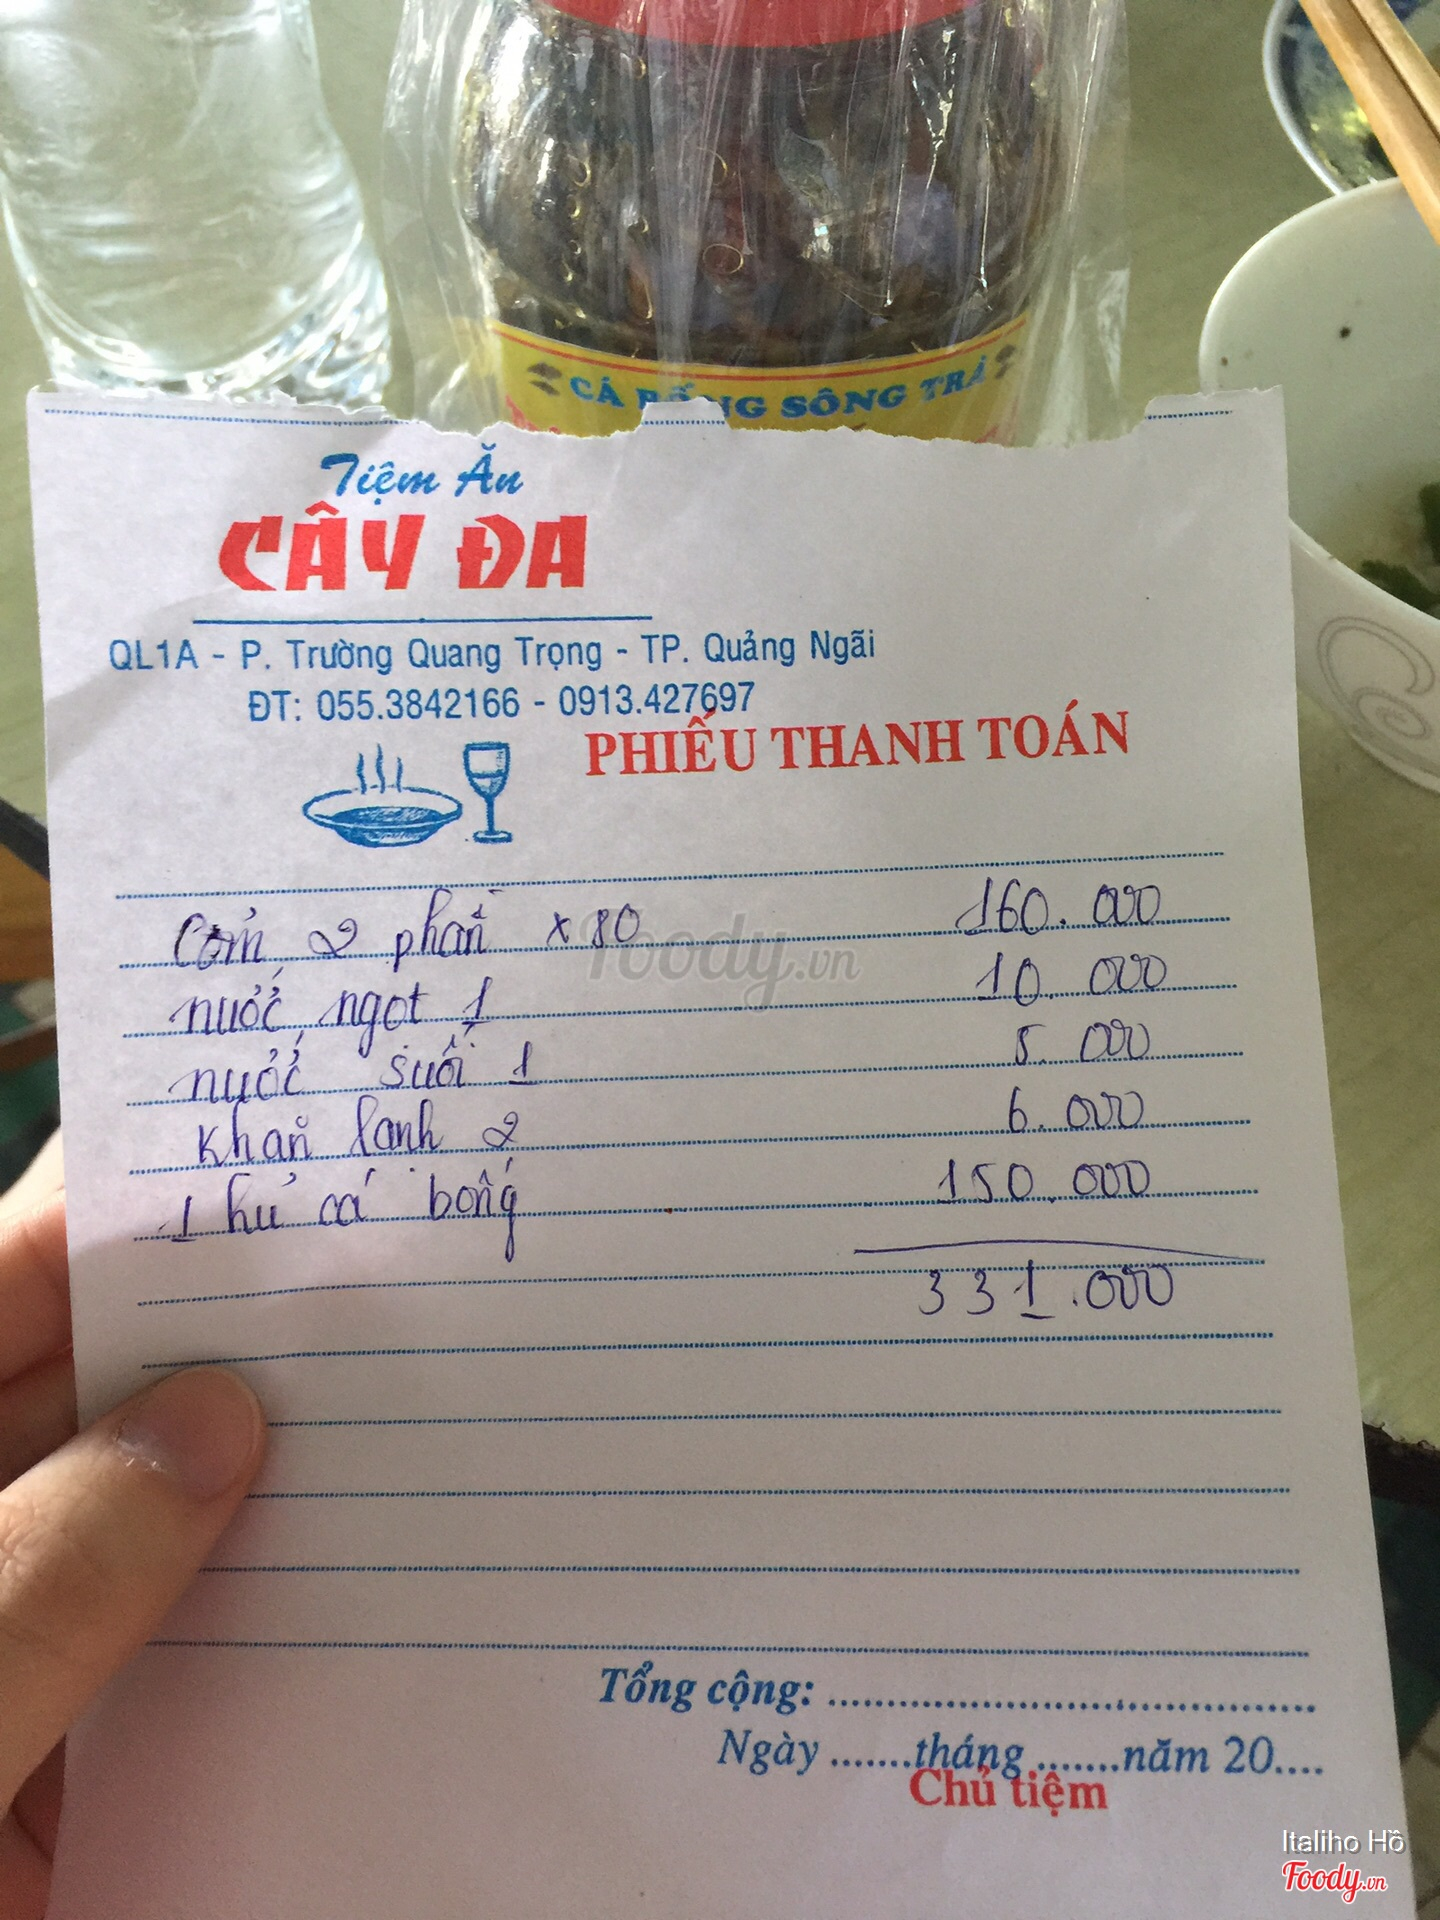 CÁ BỐNG SÔNG TRÀ
Tiệm Ăn
CÂY ĐA
QL1A - P. Trường Quang Trọng - TP. Quảng Ngãi
ĐT: 055.3842166 - 0913.427697
PHIẾU THANH TOÁN
Cơm 2 phần x 80 160.000
nước ngọt 1 10.000
nước suối 1 5.000
khăn lạnh 2 6.000
1 hủ cá bống 150.000
331.000
Foody.vn
Tổng cộng: ........................................
Ngày .......tháng .......năm 20....
Chủ tiệm
Italiho Hồ
Foody.vn